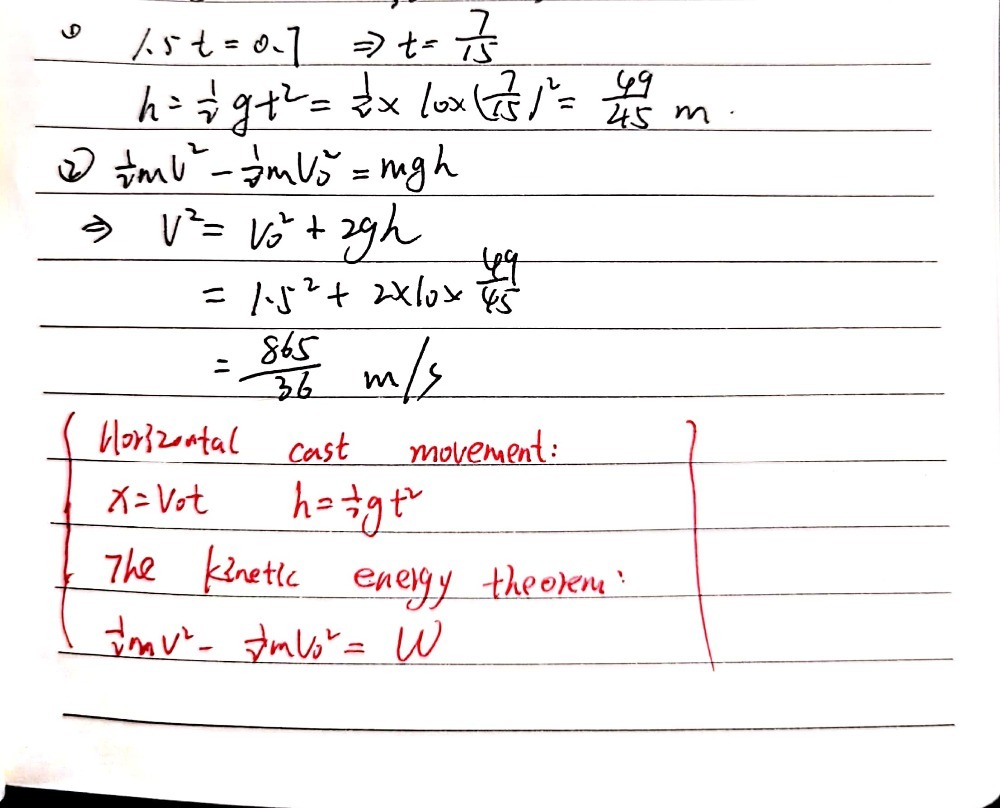 ① 1.5t = 0.7 ⇒ t = 7/15
h = 1/2 gt² = 1/2 × 10 × (7/15)² = 49/45 m.
② 1/2 mV² - 1/2 mV₀² = mgh
⇒ V² = V₀² + 2gh
= 1.5² + 2×10× 49/45
= 865/36 m/s
Horizontal cast movement:
x = V₀t h = 1/2 gt²
The kinetic energy theorem:
1/2 mV² - 1/2 mV₀² = W